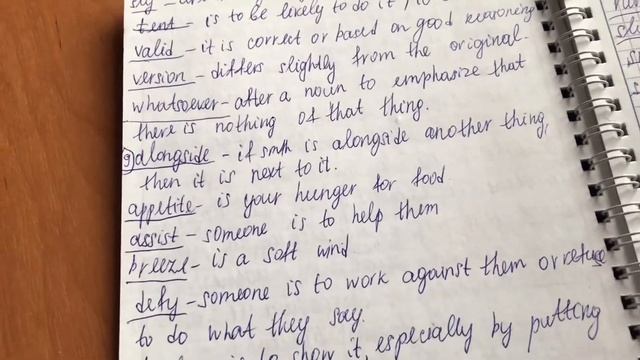 tent - is to be likely to do it
valid - it is correct or based on good reasoning
version - differs slightly from the original.
whatsoever - after a noun to emphasize that
there is nothing of that thing.
9) alongside - if smth is alongside another thing,
then it is next to it.
appetite - is your hunger for food
assist - someone is to help them
breeze - is a soft wind
defy - someone is to work against them or refuse
to do what they say.
is to show it, especially by putting